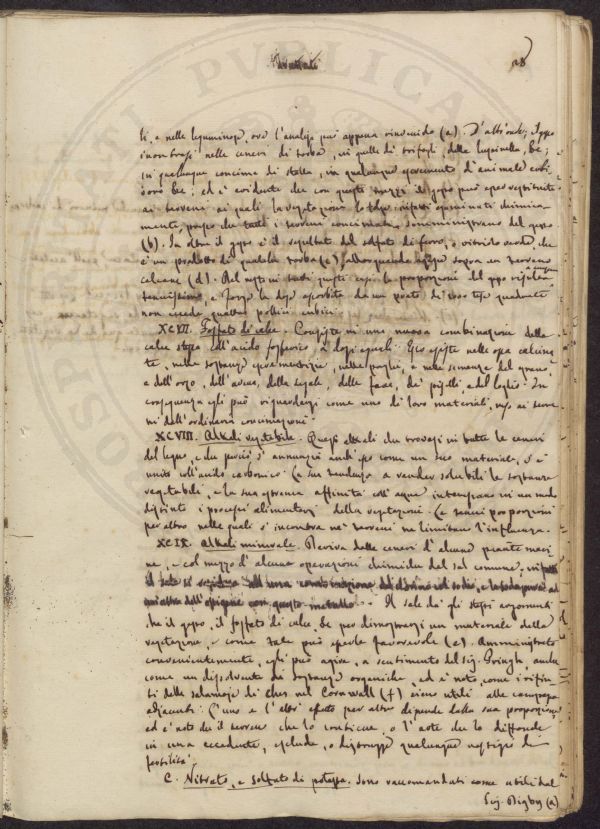 28
li, e nelle leguminose, ove l'analisi può appena rinvenirlo (a). D'altronde, il gesso
incontrasi nelle ceneri di torba, in quelle di trifogli, della lupinella, &c;
in qualunque concime di stalla, in qualunque escremento d'animale
sono &c: ed è evidente che con questi mezzi il gesso può esser restituito
ai terreni ai quali la vegetazione lo tolse
mente, tutti i terreni concimati somministrano del gesso
(b). In oltre il gesso è il resultato del solfato di ferro, o vitriolo verde, che
è un prodotto di qualche torba (c), allorquando agisce sopra un terreno
calcare (d). Nel in tutti questi casi le proporzioni del gesso
tenuissime, e forse la dose assorbita da un prato di tese quadrate
non eccede quattro pollici cubici.
XCVII. Fosfato di calce. Consiste in una nuova combinazione della
calce stessa coll'acido fosforico a dosi eguali. Esso esiste nelle ossa calcina-
te, nelle sostanze escrementizie, nelle paglie, e nelle semenze del grano
e dell'orzo, dell'avena, della segale, delle fave, de' piselli e del loglio. In
conseguenza egli può riguardarsi come uno di loro materiali, reso ai terre-
ni dall'ordinaria concimazione.
XCVIII. Alkali vegetabile. Quest'alkali che trovasi in tutte le ceneri
del legno, e che perciò s'annunzia anch'esso come un suo materiale, s'è
unito coll'acido carbonico. La sua tendenza a render solubili le sostanze
vegetabili, e la sua estrema affinità coll'acqua interessano in un modo
distinto i processi alimentari della vegetazione. Le tenui proporzioni
per altro nelle quali s'incontra ne' terreni ne limitano l'influenza.
XCIX. Alkali minerale. Deriva dalle ceneri d'alcune piante mari-
ne, e col mezzo d'alcune operazioni chimiche dal sal comune,
Il sale dà gli stessi argomenti
che il gesso, il fosfato di calce, &c per dimostrarsi un materiale della
vegetazione, e come tale può esserle favorevole (e). Amministrato
convenientemente, egli può agire, a sentimento del Sig. Pringle, anche
come un dissolvente di sostanze organiche, ed è noto, come i rifiu-
ti delle salamoje di nel Cornwall (f) siano utili alle campagne
adjacenti. L'uno e l'altro effetto per altro dipende dalla sua proporzione,
ed è noto che il terreno che lo contiene, o l'arte che lo diffonde
in una eccedente, esclude, o distrugge qualunque vestigio di
fertilità.
C. Nitrato, e solfato di potassa. Sono raccomandati come utili dal
Sig. Rigby (a)